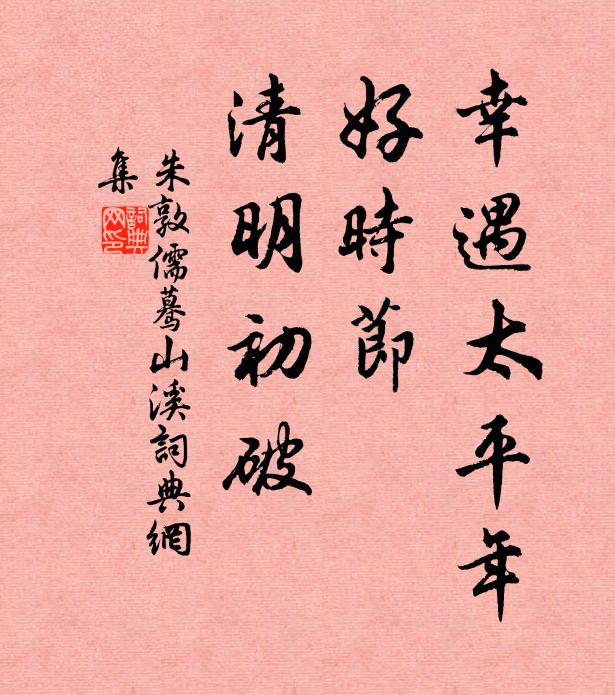 幸遇太平年
好時節
清明初破
朱敦儒驀山溪詞典網
集
詞典
网印